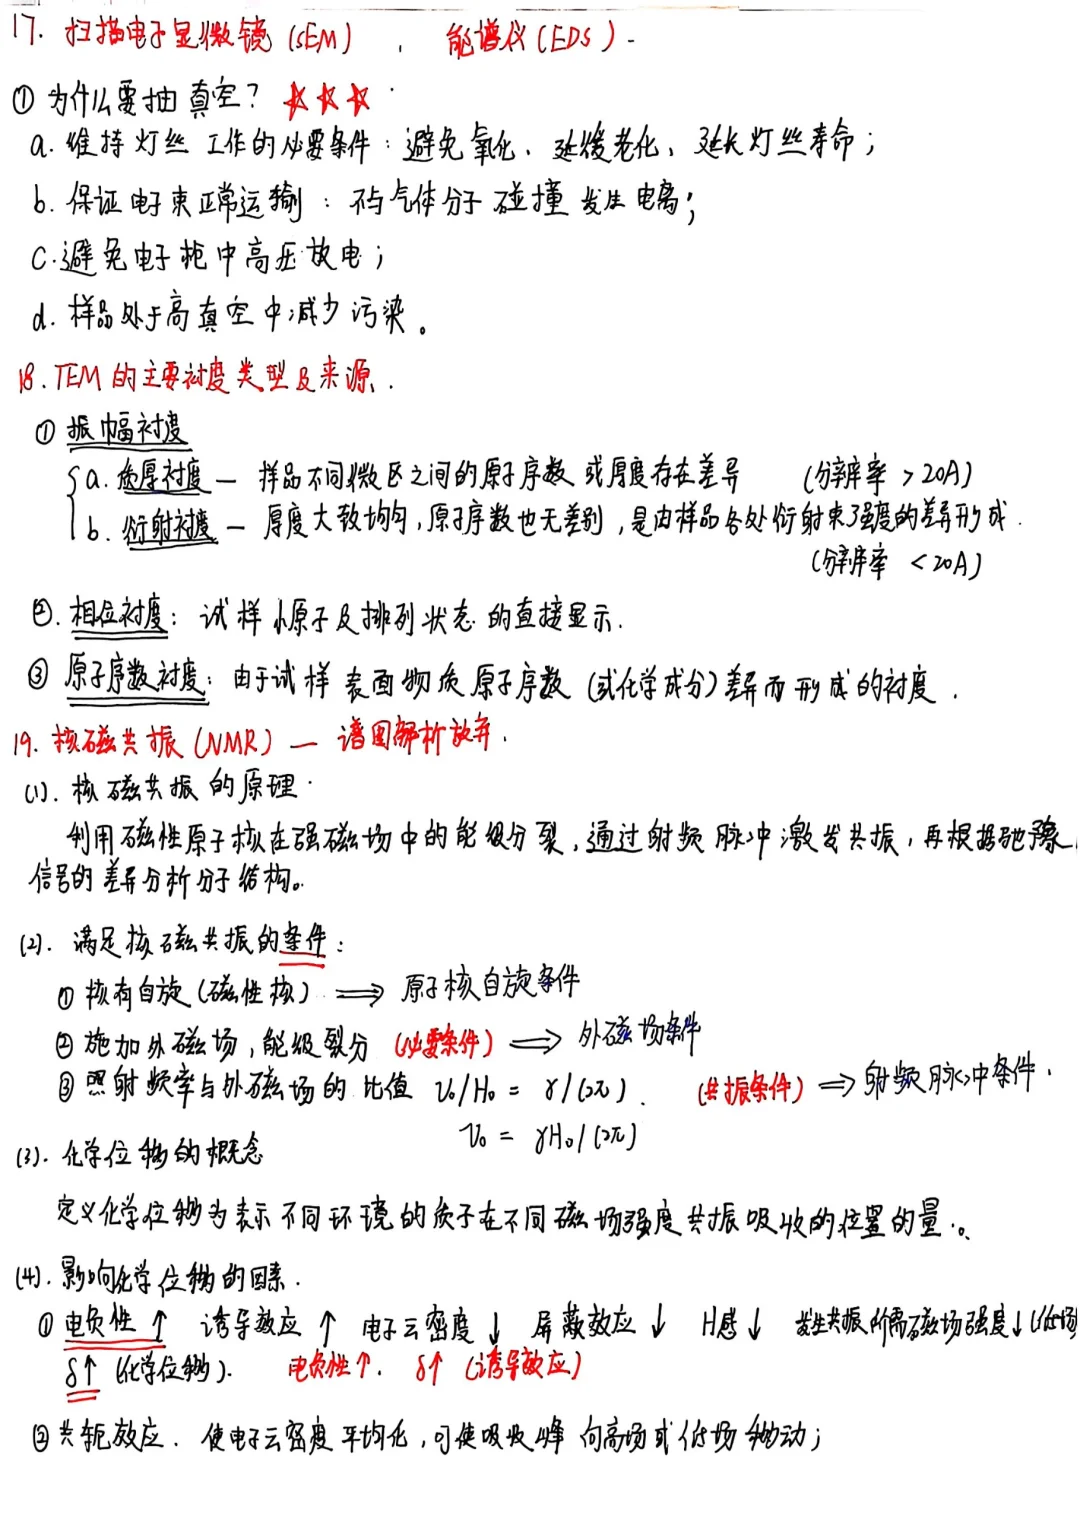 17. 扫描电子显微镜 (SEM) , 能谱仪 (EDS) .
① 为什么要抽真空? ☆☆☆
a. 维持灯丝工作的必要条件: 避免氧化、延缓老化、延长灯丝寿命;
b. 保证电子束正常运输: 不与气体分子碰撞发生电离;
c. 避免电子枪中高压放电;
d. 样品处于高真空中减少污染。
18. TEM的主要衬度类型及来源.
① 振幅衬度
a. 质厚衬度 — 样品不同微区之间的原子序数或厚度存在差异 (分辨率 > 20A)
b. 衍射衬度 — 厚度大致均匀, 原子序数也无差别, 是由样品各处衍射束强度的差异形成.
(分辨率 < 20A)
②. 相位衬度: 试样原子及排列状态的直接显示.
③ 原子序数衬度: 由于试样表面物质原子序数 (或化学成分) 差异而形成的衬度.
19. 核磁共振 (NMR) — 谱图解析放弃.
(1). 核磁共振的原理.
利用磁性原子核在强磁场中的能级分裂, 通过射频脉冲激发共振, 再根据弛豫
信号的差异分析分子结构。
(2). 满足核磁共振的条件:
① 核有自旋 (磁性核) ⇒ 原子核自旋条件
② 施加外磁场, 能级裂分 (必要条件) ⇒ 外磁场条件
③ 照射频率与外磁场的比值 ν₀/H₀ = γ/(2π). (共振条件) ⇒ 射频脉冲条件.
ν₀ = γH₀/(2π)
(3). 化学位移的概念
定义化学位移为表示不同环境的质子在不同磁场强度共振吸收的位置的量.。
(4). 影响化学位移的因素.
① 电负性↑ 诱导效应↑ 电子云密度↓ 屏蔽效应↓ H感↓ 发生共振所需磁场强度↓(低场
δ↑ (化学位移). 电负性↑. δ↑ (诱导效应)
② 共轭效应. 使电子云密度平均化, 可使吸收峰向高场或低场移动;